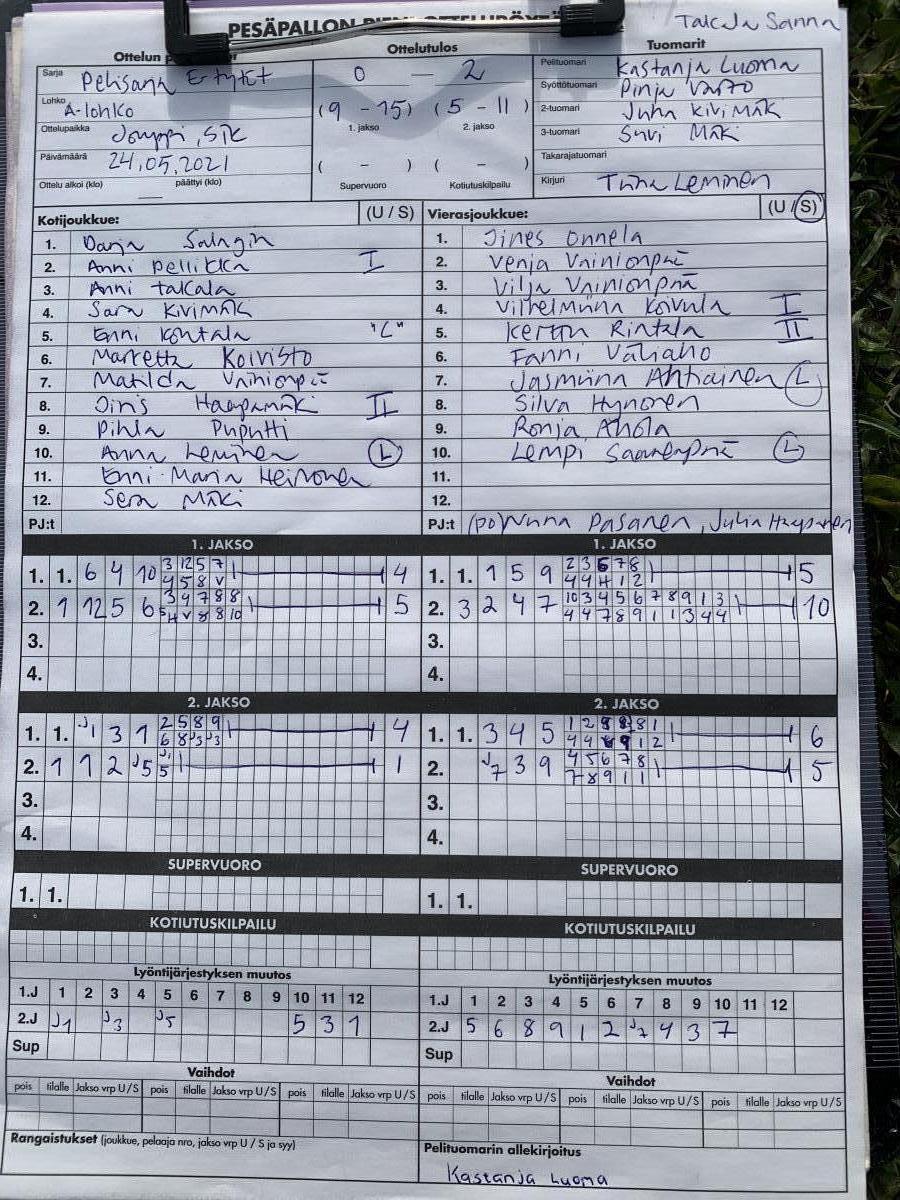 Takala Sanna
PESÄPALLON
Ottelun
Sarja Pelisarja E-tytöt
Lohko A-lohko
Ottelupaikka Jouppi, SJK
Päivämäärä 24.05.2021
Ottelu alkoi (klo) päättyi (klo)
Ottelutulos
0 — 2
(9 - 15) (5 - 11)
1. jakso 2. jakso
( - ) ( - )
Supervuoro Kotiutuskilpailu
Tuomarit
Pelituomari Kastanja Luoma
Syöttötuomari Pinja Varto
2-tuomari Juha Kivimäki
3-tuomari Suvi Mäki
Takarajatuomari
Kirjuri Tiina Leminen
Kotijoukkue: (U / S)
1. Darja Salagin
2. Anni Pellikka I
3. Anni Takala
4. Sara Kivimäki
5. Enni Kontala "L"
6. Marketta Koivisto
7. Matilda Vainionpää
8. Iiris Haapamäki II
9. Pihla Puputti
10. Anna Leminen L
11. Enni-Maria Heinonen
12. Sera Mäki
PJ:t
Vierasjoukkue: (U / S)
1. Iines Onnela
2. Venja Vainionpää
3. Vilja Vainionpää
4. Vilhelmiina Koivula I
5. Kerttu Rintala II
6. Fanni Väliaho
7. Jasmiina Ahtiainen L
8. Silva Hynonen
9. Ronja Ahola
10. Lempi Saarenpää L
11.
12.
PJ:t (po) Nunna Pasanen, Julia Haapanen
1. JAKSO
1. 1. 6 4 10 3 12 5 7 4
4 5 8 V
2. 1 12 5 6 3 4 7 8 8 5
5 H V 8 8 10
3.
4.
1. JAKSO
1. 1. 1 5 9 2 3 6 7 8 5
4 4 H 1 2
2. 3 2 4 7 10 3 4 5 6 7 8 9 1 3 10
4 4 7 8 9 1 1 3 4 4
3.
4.
2. JAKSO
1. 1. J1 3 1 2 5 8 9 4
6 8 J3 J3
2. 1 1 2 J5 J1 1
5 5
3.
4.
2. JAKSO
1. 1. 3 4 5 1 2 8 8 8 1 6
4 4 8 9 1 2
2. J7 3 9 4 5 6 7 8 5
7 8 9 1 1
3.
4.
SUPERVUORO
1. 1.
SUPERVUORO
1. 1.
KOTIUTUSKILPAILU
KOTIUTUSKILPAILU
Lyöntijärjestyksen muutos
1.J 1 2 3 4 5 6 7 8 9 10 11 12
2.J J1 J3 J5 5 3 1
Sup
Lyöntijärjestyksen muutos
1.J 1 2 3 4 5 6 7 8 9 10 11 12
2.J 5 6 8 9 1 2 J7 4 3 7
Sup
Vaihdot
pois tilalle Jakso vrp U/S pois tilalle Jakso vrp U/S pois tilalle Jakso vrp U/S
Vaihdot
pois tilalle Jakso vrp U/S pois tilalle Jakso vrp U/S pois tilalle Jakso vrp U/S
Rangaistukset (joukkue, pelaaja nro, jakso vrp U / S ja syy)
Pelituomarin allekirjoitus
Kastanja Luoma